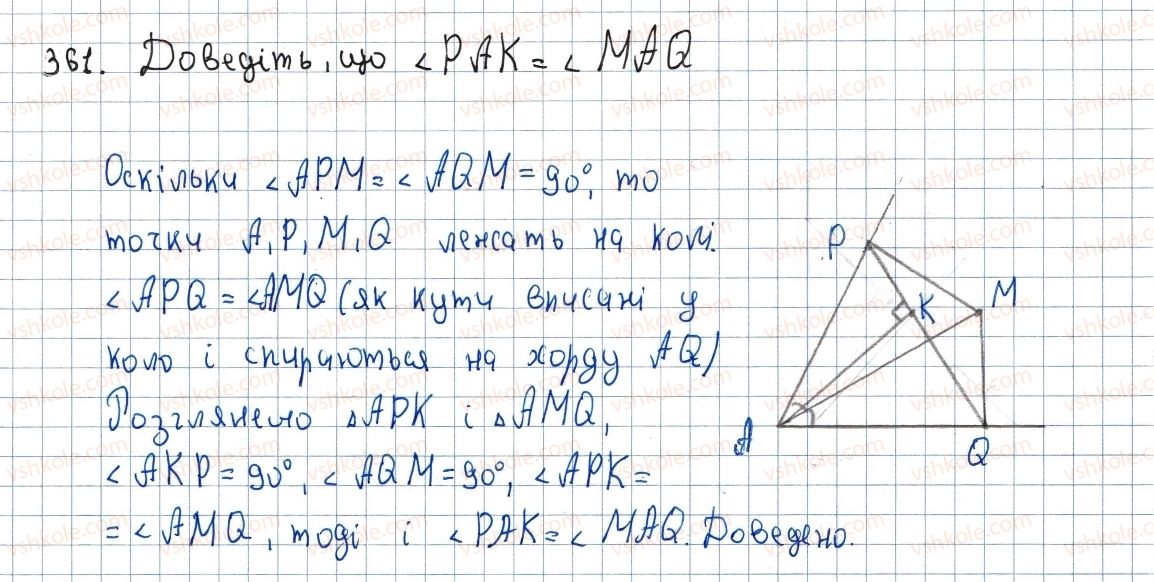 361. Доведіть, що ∠PAK = ∠MAQ
Оскільки ∠APM = ∠AQM = 90°, то
точки A, P, M, Q лежать на колі.
∠APQ = ∠AMQ (як кути вписані у
коло і спираються на хорду AQ)
Розглянемо △APK і △AMQ,
∠AKP = 90°, ∠AQM = 90°, ∠APK =
= ∠AMQ, тоді і ∠PAK = ∠MAQ. Доведено.
P
K
M
A
Q
vshkole.com